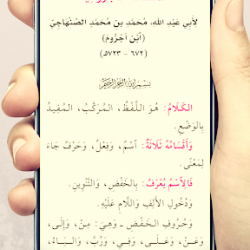 لِأَبِي عَبْدِ اللهِ، مُحَمَّدِ بنِ مُحَمَّدٍ الصَّنْهَاجِيِّ
(ابْنِ آجُرُّوم)
(٦٧٢ - ٧٢٣هـ)
بِسْمِ اللَّهِ الرَّحْمَنِ الرَّحِيمِ
الْكَلَامُ: هُوَ اللَّفْظُ، الْمُرَكَّبُ، الْمُفِيدُ
بِالْوَضْعِ.
وَأَقْسَامُهُ ثَلَاثَةٌ: اسْمٌ، وَفِعْلٌ، وَحَرْفٌ جَاءَ
لِمَعْنًى.
فَالِاسْمُ يُعْرَفُ: بِالْخَفْضِ، وَالتَّنْوِينِ،
وَدُخُولِ الْأَلِفِ وَاللَّامِ عَلَيْهِ.
وَحُرُوفِ الْخَفْضِ - وَهِيَ: مِنْ، وَإِلَى،
وَعَنْ، وَعَلَى، وَفِي، وَرُبَّ، وَالْبَاءُ،